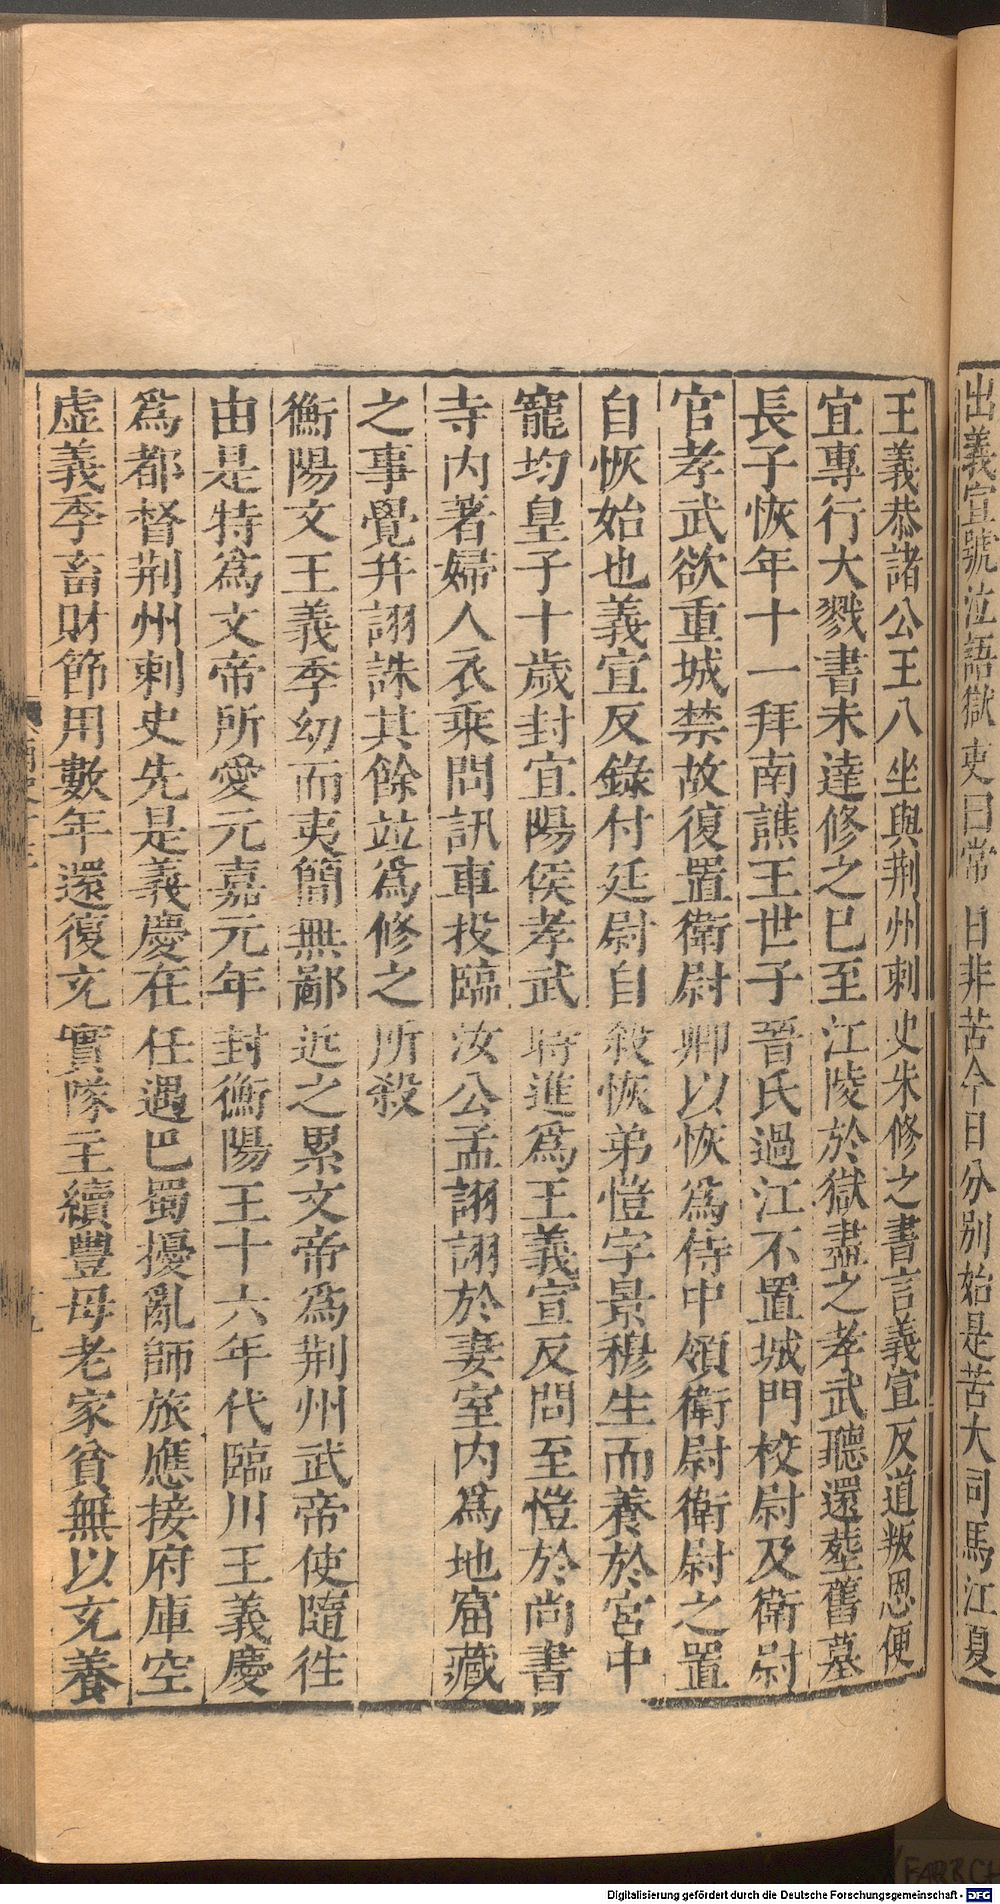 出義宣號泣語獄吏曰常日非苦今日分別始是苦大司馬江夏
王義恭諸公王八坐與荆州刺史朱修之書言義宣反道叛恩便
宜專行大戮書未達修之已至江陵於獄盡之孝武聽還塟舊墓
長子恢年十一拜南譙王世子晉氏過江不置城門校尉及衛尉
官孝武欲重城禁故復置衛尉卿以恢爲侍中領衛尉衛尉之置
自恢始也義宣反錄付廷尉自殺恢弟愷字景穆生而養於宮中
寵均皇子十歲封宜陽侯孝武時進爲王義宣反問至愷於尚書
寺内著婦人衣乘問訊車投臨汝公孟詡詡於妻室内爲地窟藏
之事覺幷詡誅其餘竝爲修之所殺
衡陽文王義季幼而夷簡無鄙近之累文帝爲荆州武帝使隨往
由是特爲文帝所愛元嘉元年封衡陽王十六年代臨川王義慶
爲都督荆州刺史先是義慶在任遇巴蜀擾亂師旅應接府庫空
虛義季畜財節用數年還復充實隊主續豐母老家貧無以充養
Digitalisierung gefördert durch die Deutsche Forschungsgemeinschaft - DFG